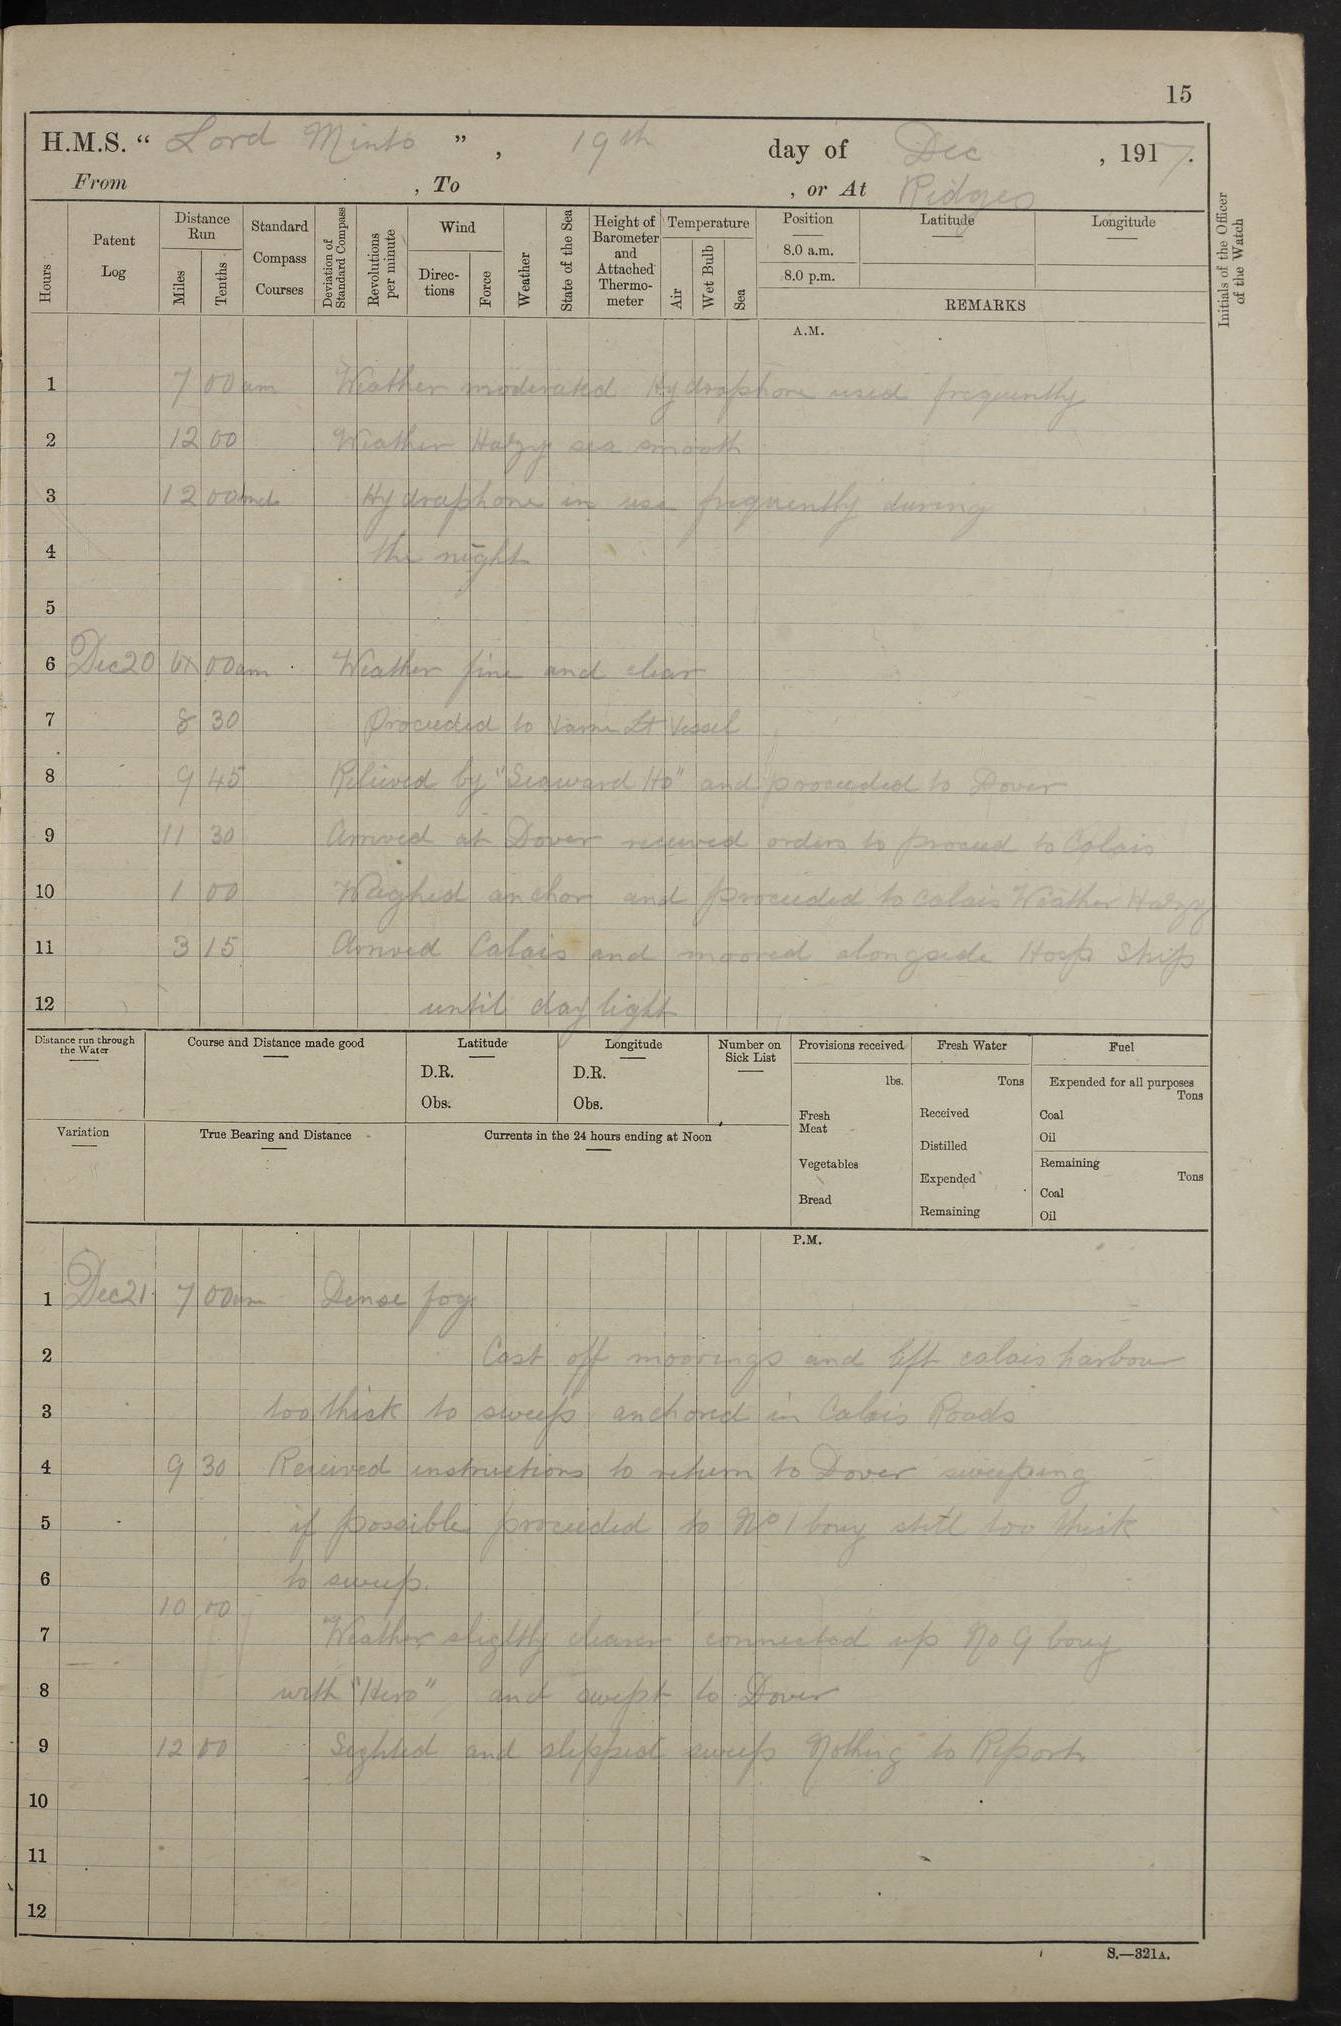 15
H.M.S. “ Lord Minto ” , 19th day of Dec , 1917.
From , To , or At Ridges
Hours
Patent Log
Distance Run
Miles
Tenths
Standard Compass Courses
Deviation of Standard Compass
Revolutions per minute
Wind
Direc-tions
Force
Weather
State of the Sea
Height of Barometer and Attached Thermo-meter
Temperature
Air
Wet Bulb
Sea
Position
8.0 a.m.
8.0 p.m.
Latitude
Longitude
REMARKS
Initials of the Officer of the Watch
A.M.
1 7 00 am Weather moderated Hydraphone used frequently
2 12 00 Weather Hazy sea smooth
3 12 00 md Hydraphone in use frequently during
4 the night
5
6 Dec 20 00 am Weather fine and clear
7 8 30 Proceeded to Varne Lt Vessel
8 9 45 Relieved by "Seaward Ho" and proceeded to Dover
9 11 30 Arrived at Dover received orders to proceed to Calais
10 1 00 Weighed anchor and proceeded to Calais Weather Hazy
11 3 15 Arrived Calais and moored alongside Hosp Ship
12 until day light
Distance run through the Water
Course and Distance made good
Latitude
D.R.
Obs.
Longitude
D.R.
Obs.
Number on Sick List
Provisions received
lbs.
Fresh Meat
Vegetables
Bread
Fresh Water
Tons
Received
Distilled
Expended
Remaining
Fuel
Expended for all purposes
Tons
Coal
Oil
Remaining
Tons
Coal
Oil
Variation
True Bearing and Distance
Currents in the 24 hours ending at Noon
P.M.
1 Dec 21 7 00 am Dense fog
2 Cast off moorings and left calais harbour
3 too thick to sweep anchored in Calais Roads
4 9 30 Received instructions to return to Dover sweeping
5 if possible proceeded to No 1 bouy still too thick
6 to sweep.
10 00
7 Weather sligtly clearer connected up No 9 bouy
8 with "Hero" and swept to Dover
9 12 00 Sighted and slipped sweep Nothing to Report
10
11
12
S.—321A.